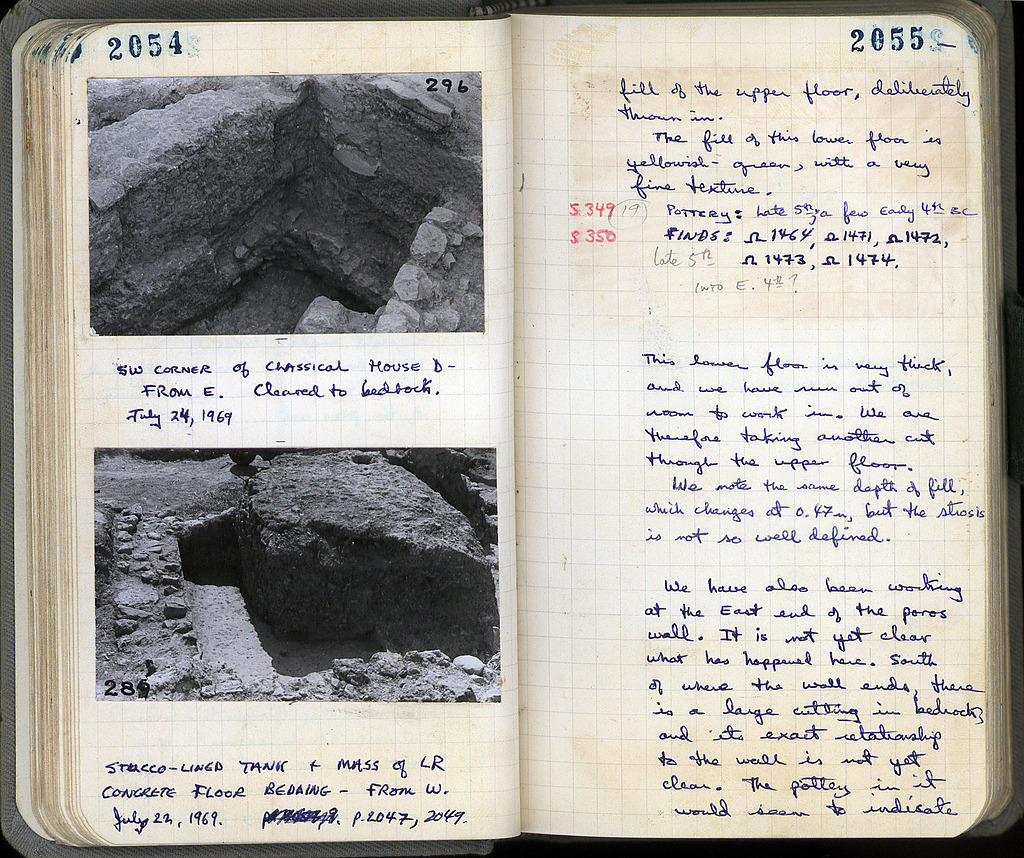 2054
296
SW CORNER of CLASSICAL HOUSE D-
FROM E. Cleared to bedrock.
July 24, 1969
289
STUCCO-LINED TANK + MASS of LR
CONCRETE FLOOR BEDDING - FROM W.
July 23, 1969. p.2047, 2049.
2055
fill of the upper floor, deliberately
thrown in.
The fill of this lower floor is
yellowish-green, with a very
fine texture.
S 349 (19) POTTERY: Late 5th, a few Early 4th BC
S 350 FINDS: Ω 1464, Ω 1471, Ω 1472,
late 5th Ω 1473, Ω 1474.
into E. 4th?
This lower floor is very thick,
and we have run out of
room to work in. We are
therefore taking another cut
through the upper floor.
We note the same depth of fill,
which changes at 0.47m, but the strosis
is not so well defined.
We have also been working
at the East end of the poros
wall. It is not yet clear
what has happened here. South
of where the wall ends, there
is a large cutting in bedrock,
and its exact relationship
to the wall is not yet
clear. The pottery in it
would seem to indicate